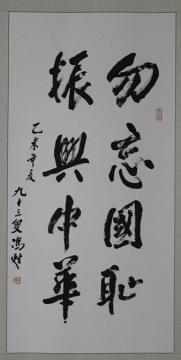 勿忘國恥
振興中華
乙未年夏
九十三叟馮